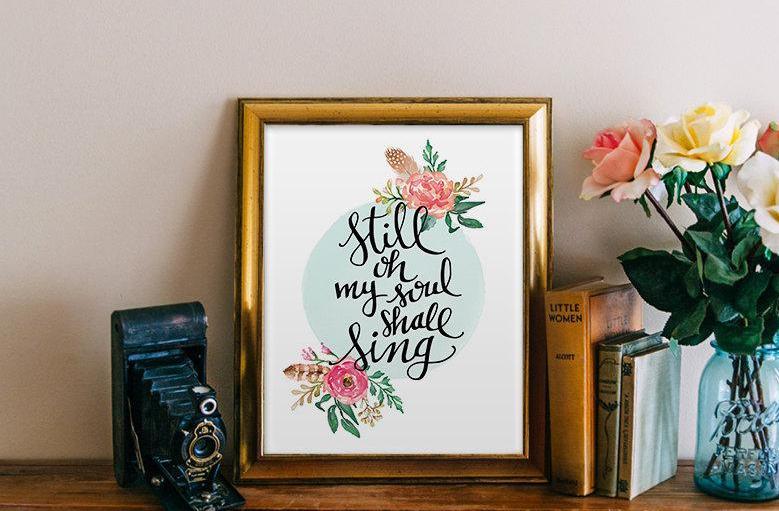 Still
oh
my soul
shall
Sing
LITTLE
WOMEN
ALCOTT
Ball
PERFECT
MASON